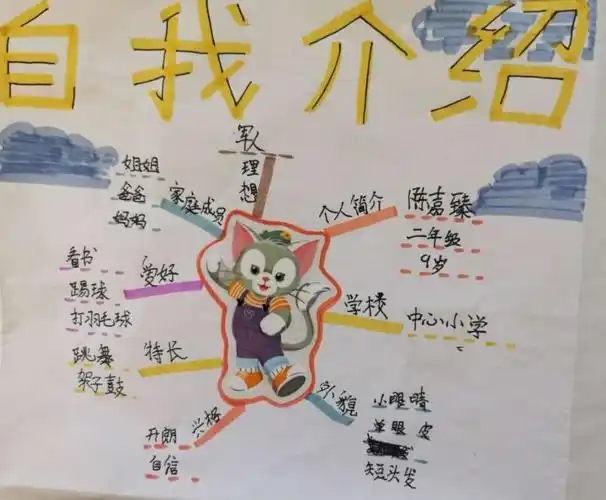 自我介绍
军人
理想
个人简介
陈嘉臻
二年级
9岁
学校
中心小学
外貌
小眼睛
单眼皮
短头发
家庭成员
姐姐
爸爸
妈妈
爱好
看书
踢球
打羽毛球
特长
跳舞
架子鼓
开朗
自信